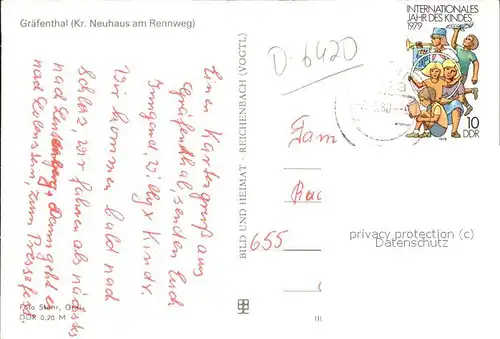 Gräfenthal (Kr. Neuhaus am Rennweg)
Einen Kartengruß aus
Gräfenthal, senden Euch
Irmgard, Willy & Kinder.
Wir kommen bald nach
Schleiz, wir fahren als nächstes
nach Lindenberg. Dann geht es
nach Lobenstein, zum Pressefest.
Foto Stöhr, Greiz
DDR 0,20 M
BILD UND HEIMAT · REICHENBACH (VOGTL)
D-6420
INTERNATIONALES
JAHR DES KINDES
1979
10
DDR
Fam
655
privacy protection (c)
Datenschutz